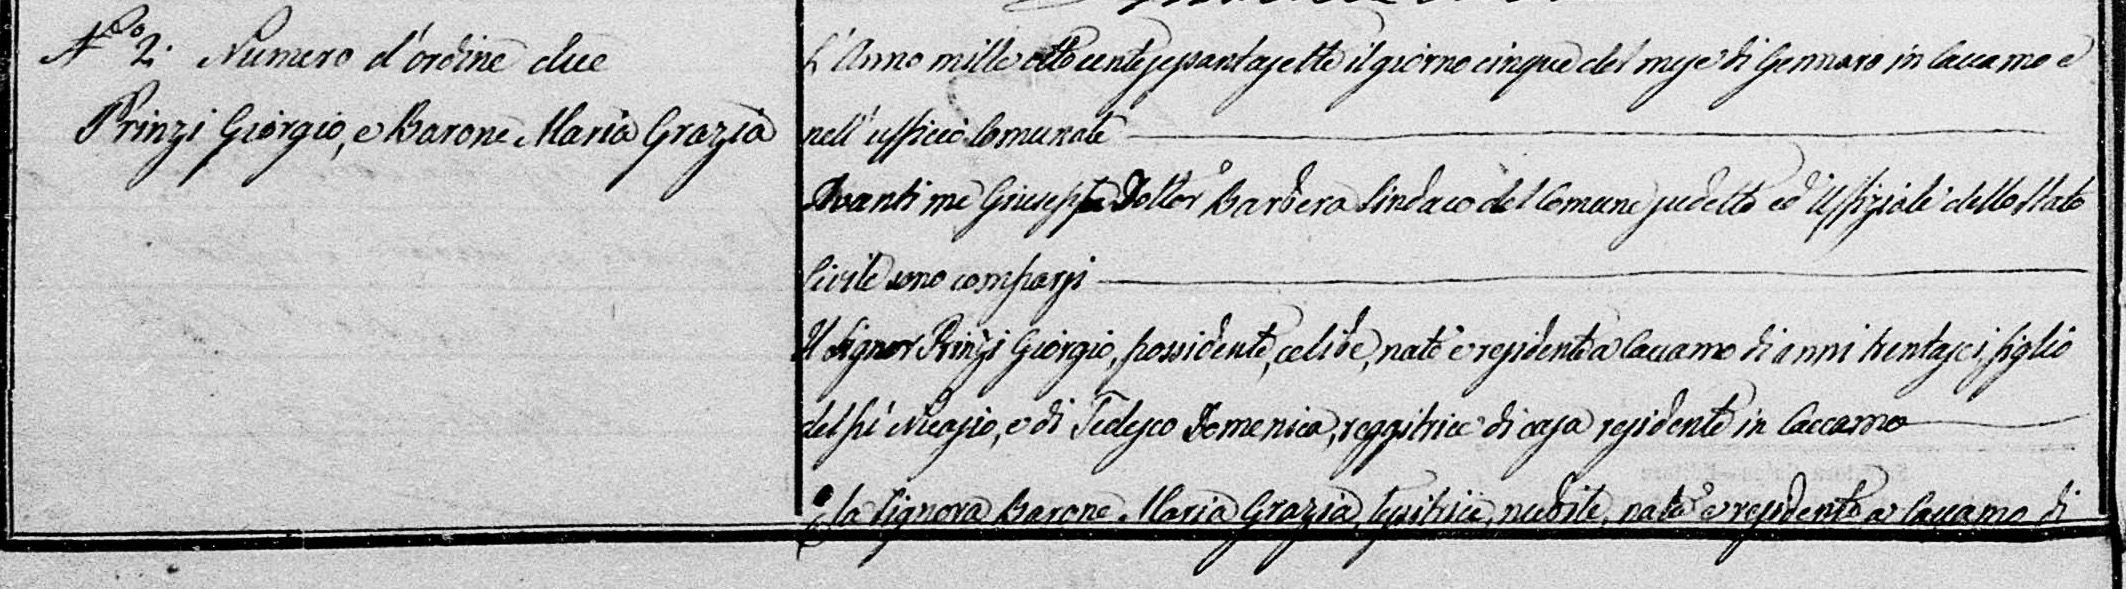 N.º 2. Numero d'ordine due
Prinzi Giorgio, e Barone Maria Grazia
L'Anno mille ottocentosessantasette il giorno cinque del mese di Gennaro in Caccamo e
nell'ufficio Comunale
Avanti me Giuseppe Dottor Barbera Sindaco del Comune sudetto ed Uffiziale dello Stato
Civile sono comparsi
Il Signor Prinzi Giorgio, possidente, celibe, nato e residente a Caccamo di anni trentasei figlio
del fù Nicasio, e di Tedesco Domenica, reggitrice di casa residente in Caccamo
E la Signora Barone Maria Grazia, tessitrice, nubile, nata e residente a Caccamo di